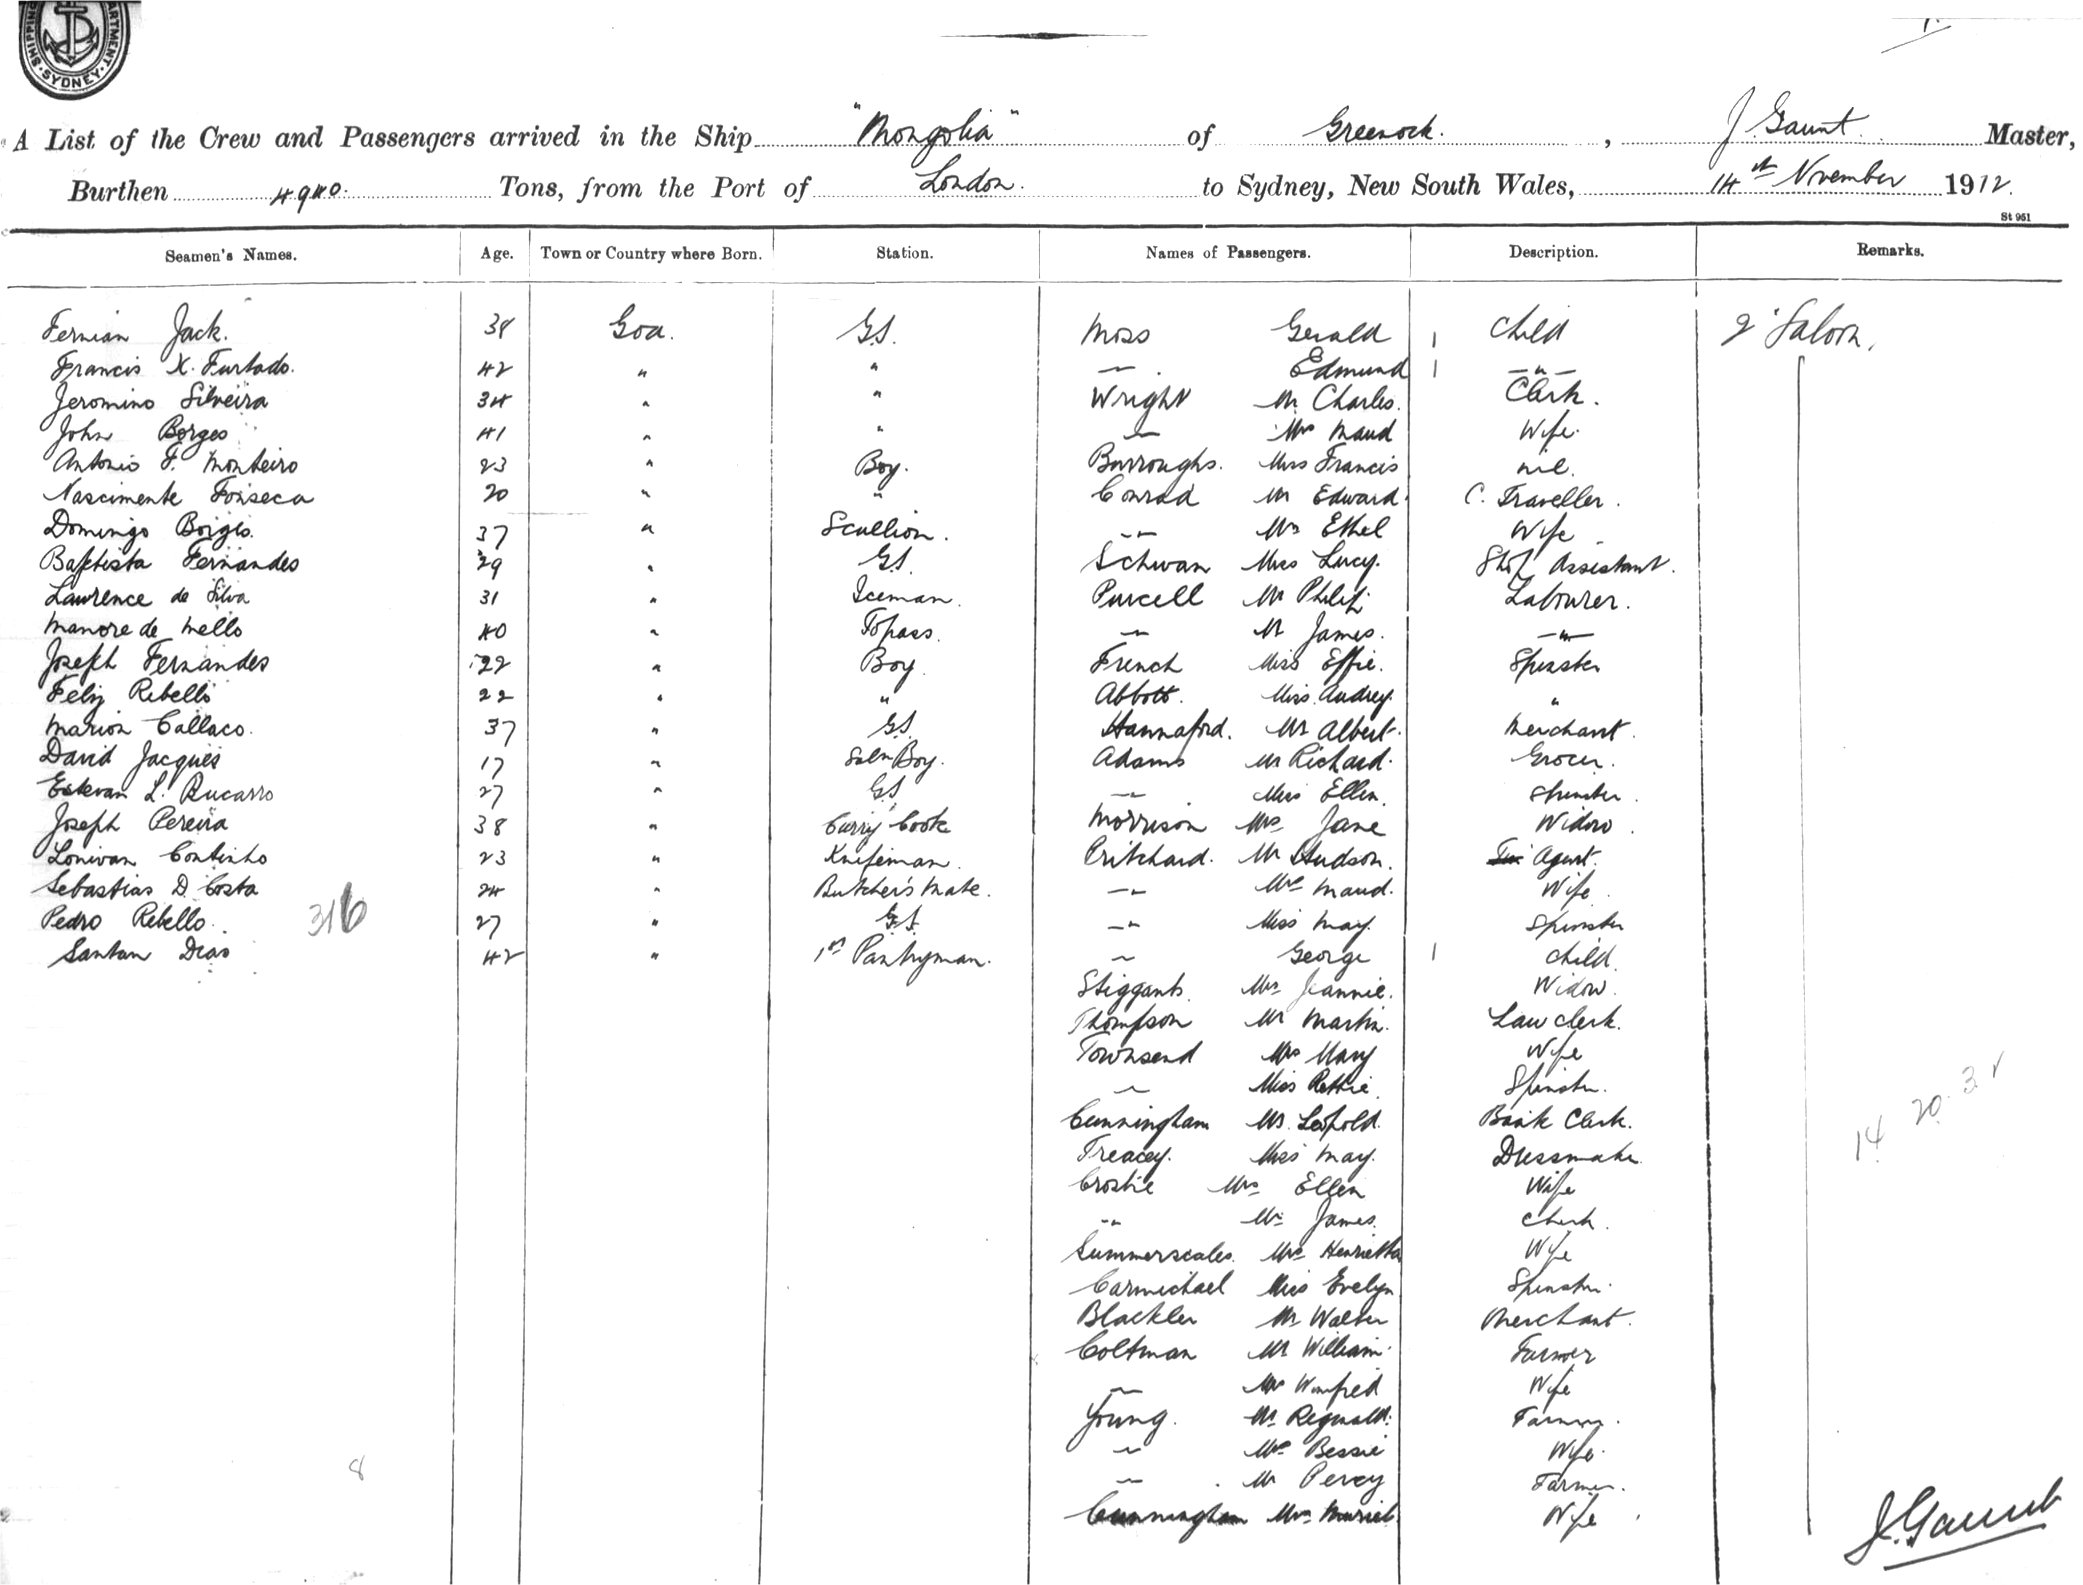 SHIPPING DEPARTMENT SYDNEY
A List of the Crew and Passengers arrived in the Ship "Mongolia" of Greenock. , J. Gaunt Master,
Burthen 4940. Tons, from the Port of London. to Sydney, New South Wales, 14th November 1912.
St 951
Seamen's Names. Age. Town or Country where Born. Station. Names of Passengers. Description. Remarks.
Jack. 38 Goa. G.S. Moss Gerald 1 Child 2 Saloon.
Francis X. Furtado. 42 " " — Edmund 1 — " —
Jeromino Silveira 34 " " Wright Mr Charles. Clerk.
John Borges 41 " " — Mrs Maud Wife.
Antonio F. Monteiro 23 " Boy. Burroughs. Miss Francis nil.
Nascimente Fonseca 20 " " Conrad Mr Edward. C. Traveller.
Domingo Borges. 37 " Scullion. —"— Mrs Ethel Wife
Baptista Fernandes 29 " G.S. Schwan Miss Lucy. Shop Assistant.
Lawrence de Silva 31 " Iceman. Purcell Mr Philip Labourer.
de Mello 40 " Topass. — Mr James. —"—
Joseph Fernandes 22 " Boy. French Miss Effie. Spinster
Feliz Rebello 22 " " Abbott. Miss Audrey. "
Callaco. 37 " G.S. Hannaford. Mr Albert. Merchant.
David Jacques 17 " Saln Boy. Adams Mr Richard. Grocer.
Estevan L. Bucarro 27 " G.S. — Miss Ellen. Spinster.
Joseph Pereira 38 " Curry Cook Morrison Mrs Jane Widow.
Continho 23 " Knifeman. Pritchard. Mr Hudson. Agent.
Sebastias D. Costa 24 " Butcher's Mate. —"— Mrs Maud. Wife.
Pedro Rebello. 316 27 " G.S. —"— Miss May. Spinster
Santan Dias 42 " 1st Pantryman. — George 1 Child.
Stiggants. Mrs Jeannie. Widow.
Thompson Mr Martin. Law clerk.
Townsend Mrs Mary Wife
— Miss Spinster.
Cunningham Mr. Leopold. Bank Clerk.
Treacey. Miss May. Dressmaker
Crosbie Mrs Ellen Wife
—"— Mr James. Clerk.
Summerscales. Mrs Henrietta Wife
Carmichael Miss Evelyn Spinster.
Blackler Mr Walter Merchant.
Coltman Mr William. Farmer
— Mrs Winifred Wife
Young. Mr Reginald. Farmer.
— Mrs Bessie Wife.
— Mr Percy Farmer.
Cunningham Mrs Muriel Wife
14 20 3
8
J. Gaunt